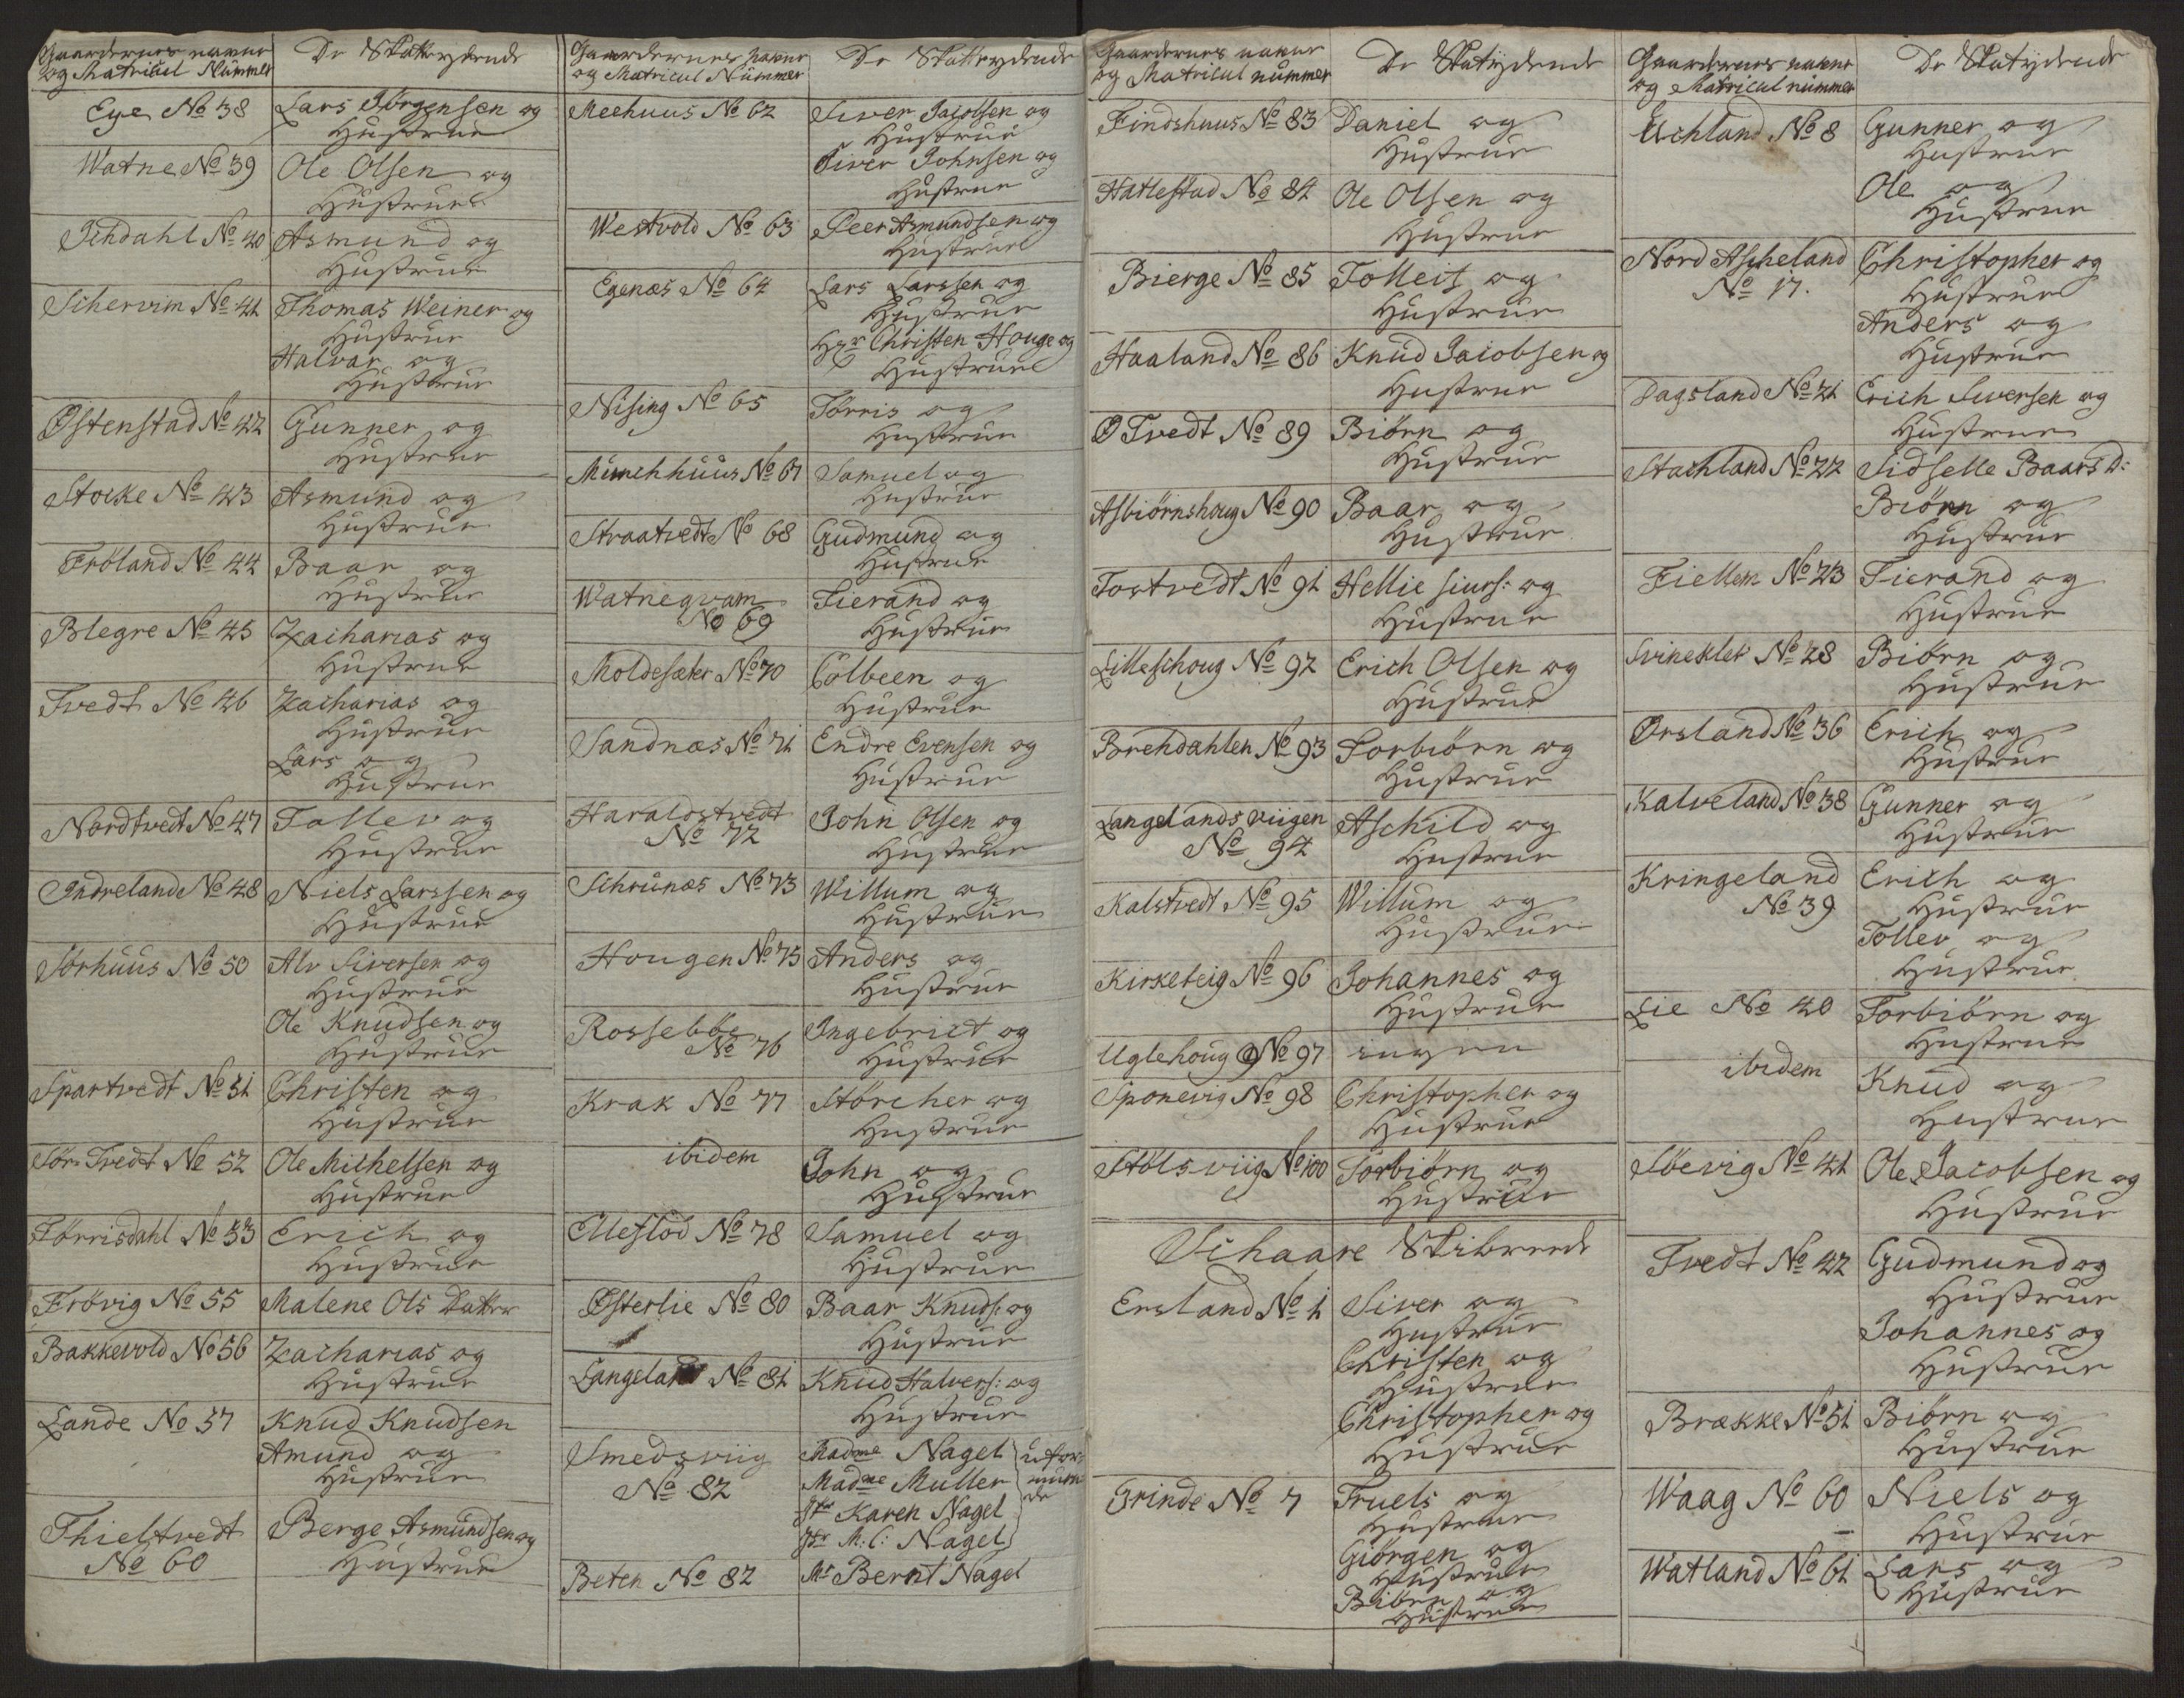 Gaardernes navne
og Matricul Nümmer
De Skatteydende
Eye No 38
Lars Jørgensen og
Hustrue
Watne No 39
Ole Olsen og
Hustrue
Ichdahl No 40
Asmund og
Hustrue
Schervim No 41
Thomas Weiner og
Hustrue
Halvar og
Hustrue
Østenstad No 42
Gunner og
Hustrue
Stocke No 43
Asmund og
Hustrue
Fröland No 44
Baar og
Hustrue
Blegre No 45
Zacharias og
Hustrue
Tvedt No 46
Zacharias og
Hustrue
Lars og
Hustrue
Nordtvedt No 47
Tollev og
Hustrue
Indreland No 48
Niels Larssen og
Hustrue
Sörhuus No 50
Alv Siversen og
Hustrue
Ole Knudsen og
Hustrue
Spartvedt No 51
Christen og
Hustrue
Sör Tvedt No 52
Ole Michelsen og
Hustrue
Törrisdahl No 53
Erich og
Hustrue
Frövig No 55
Malene Ols Datter
Bakkevold No 56
Zacharias og
Hustrue
Lande No 57
Knud Knudsen
Amund og
Hustrue
Thieltvedt
No 60
Berge Asmundsen og
Hustrue
Gaardernes navne
og Matricul Nümmer
De Skatteydende
Meehuus No 62
Siver Jacobsen og
Hustrue
Siver Johnsen og
Hustrue
Westvold No 63
Peer Asmundsen og
Hustrue
Egenæs No 64
Lars Larssen og
Hustrue
Hr Christen Houge og
Hustrue
Nising No 65
Törris og
Hustrue
Münchhuus No 67
Samuel og
Hustrue
Straatvedt No 68
Gudmund og
Hustrue
Watneqvam
No 69
Tierand og
Hustrue
Moldesæter No 70
Colbeen og
Hustrue
Sandnæs No 71
Endre Evensen og
Hustrue
Haraldstvedt
No 72
John Olsen og
Hustrue
Schrunæs No 73
Willum og
Hustrue
Hougen No 75
Anders og
Hustrue
Rosseböe
No 76
Ingebrict og
Hustrue
Krak No 77
Störcher og
Hustrue
ibidem
John og
Hustrue
Elleflöd No 78
Samuel og
Hustrue
Østerlie No 80
Baar Knuds: og
Hustrue
Langeland No 81
Knud Halvers: og
Hustrue
Smedsviig
No 82
Madme Nagel
Madme Muller
Jfr Karen Nagel
Jfr M: C: Nagel
uformuende
Beten No 82
Mr Bernt Nagel
Gaardernes navne
og Matricul nümmer
De Skatydende
Findshuus No 83
Daniel og
Hustrue
Hatlestad No 84
Ole Olsen og
Hustrue
Bierge No 85
Tolleif og
Hustrue
Haaland No 86
Knud Jacobsen og
Hustrue
O Tvedt No 89
Biörn og
Hustrue
Asbiörnshoug No 90
Baar og
Hustrue
Tostvedt No 91
Hellie siurs: og
Hustrue
Lilleschoug No 92
Erich Olsen og
Hustrue
Brehdahlen No 93
Torbiörn og
Hustrue
Langelandsviigen
No 94
Aschild og
Hustrue
Kalstvedt No 95
Willum og
Hustrue
Kirketeig No 96
Johannes og
Hustrue
Uglehoug No 97
ingen
Sponevig No 98
Christopher og
Hustrue
Stölsviig No 100
Torbiörn og
Hustrue
Schaare Skibrede
Ersland No 1
Siver og
Hustrue
Christen og
Hustrue
Christopher og
Hustrue
Grinde No 7
Truels og
Hustrue
Giörgen og
Hustrue
Biörn og
Hustrue
Gaardernes navne
og Matricul nümmer
De Skatydende
Uchland No 8
Gunner og
Hustrue
Ole og
Hustrue
Nord Ascheland
No 17.
Christopher og
Hustrue
Anders og
Hustrue
Dagsland No 21
Erich Siversen og
Hustrue
Stachland No 22
Sidselle Baars D:
Biörn og
Hustrue
Fiellem No 23
Tierand og
Hustrue
Svineklei No 28
Biörn og
Hustrue
Ørsland No 36
Erich og
Hustrue
Kalveland No 38
Gunner og
Hustrue
Kringeland
No 39
Erich og
Hustrue
Tollev og
Hustrue
Lie No 40
Torbiörn og
Hustrue
ibidem
Knud og
Hustrue
Söevig No 41
Ole Jacobsen og
Hustrue
Tvedt No 42
Gudmund og
Hustrue
Johannes og
Hustrue
Brække No 51
Biörn og
Hustrue
Waag No 60
Niels og
Hustrue
Watland No 61
Lars og
Hustrue